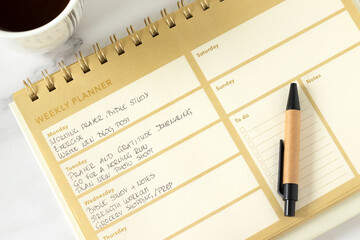 WEEKLY PLANNER
Monday
MORNING PRAYER / BIBLE STUDY
EXERCISE
WRITE NEW BLOG POST
Tuesday
PRAYER AND GRATITUDE JOURNALING
GO FOR A MORNING RUN
PLAN NEW PHOTO SHOOT
Wednesday
BIBLE STUDY + NOTES
STRENGTH WORKOUT
GROCERY SHOPPING / PREP
Thursday
Saturday
Sunday
To do
Notes